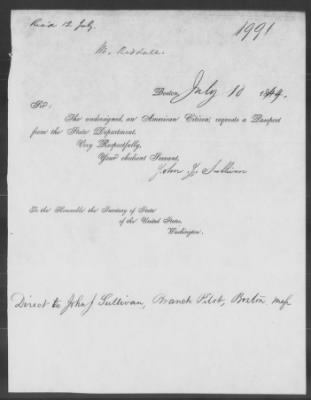 Rec'd 12 July.
1991
Mr. Riddall.
Boston, July 10 1849.
Sir:
The undersigned, an American Citizen, requests a Passport
from the State Department.
Very Respectfully,
Your obedient Servant,
John J. Sullivan
To the Honorable the Secretary of State
of the United States,
Washington.
Direct to John J Sullivan, Branch Pilot, Boston Mass